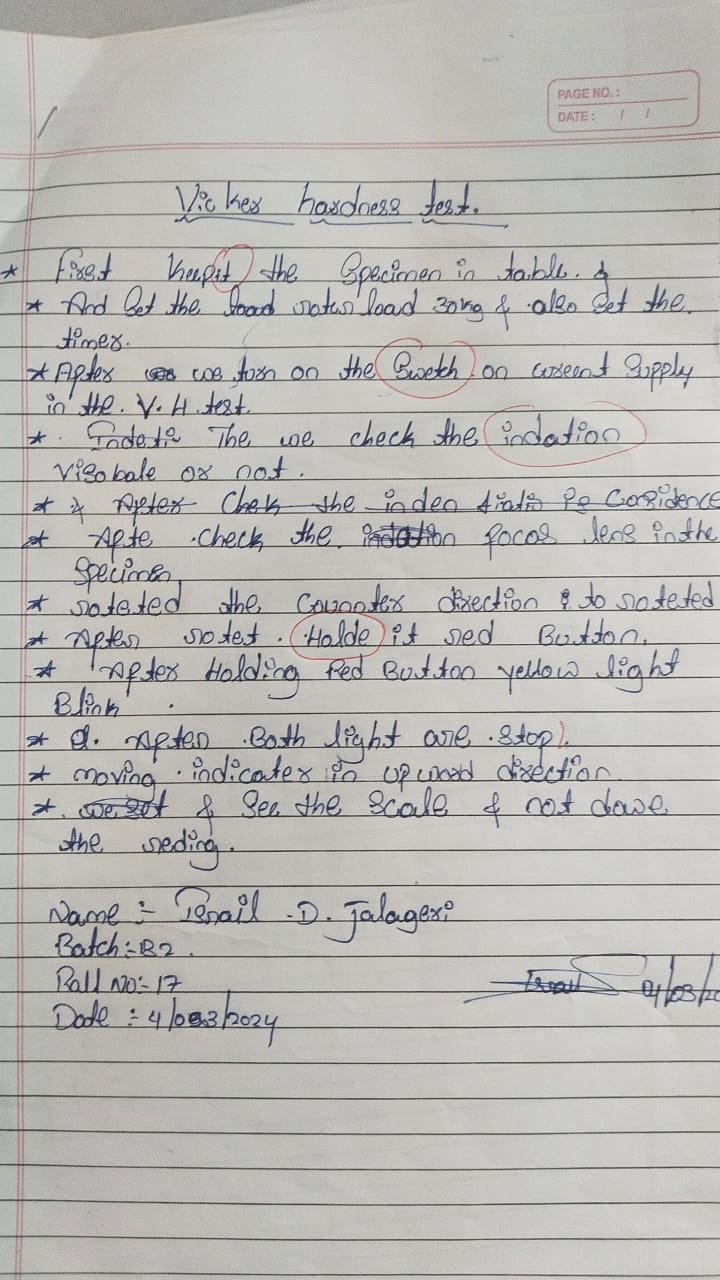 PAGE NO. :
DATE : / /
Vicker hardness test.
* First keepit the Specimen in table. &
* And Set the load rotar load 30kg & also set the
timer.
* After we turn on the Swetch on current Supply
in the. V. H. test.
* . The we check the indation
visobale or not .
* After Chek the inden
* Afte . check the. focos lens in the
Specimen,
* roteted the Counnter direction & to roteted
* After rotet . Halde it red Button.
* After Holding Red Button yellow light
Blink .
* After . Both light are . Stop
* moving . indicater in upword direction
* & See the Scale & not dowe
the reding .
Name :- D. Jalageri
Batch :- B2 .
Roll No :- 17
Date : 4/03/2024